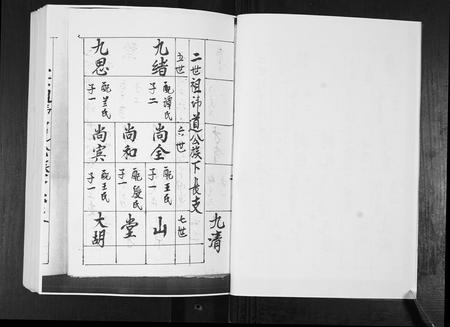 二世祖沛道公族下長支
九清
五世
九緒
配譚氏
子二
九思
配兰氏
子一
六世
尚全
配王氏
子一
尚和
配殷氏
子一
尚賓
配王氏
子一
七世
山
堂
大胡